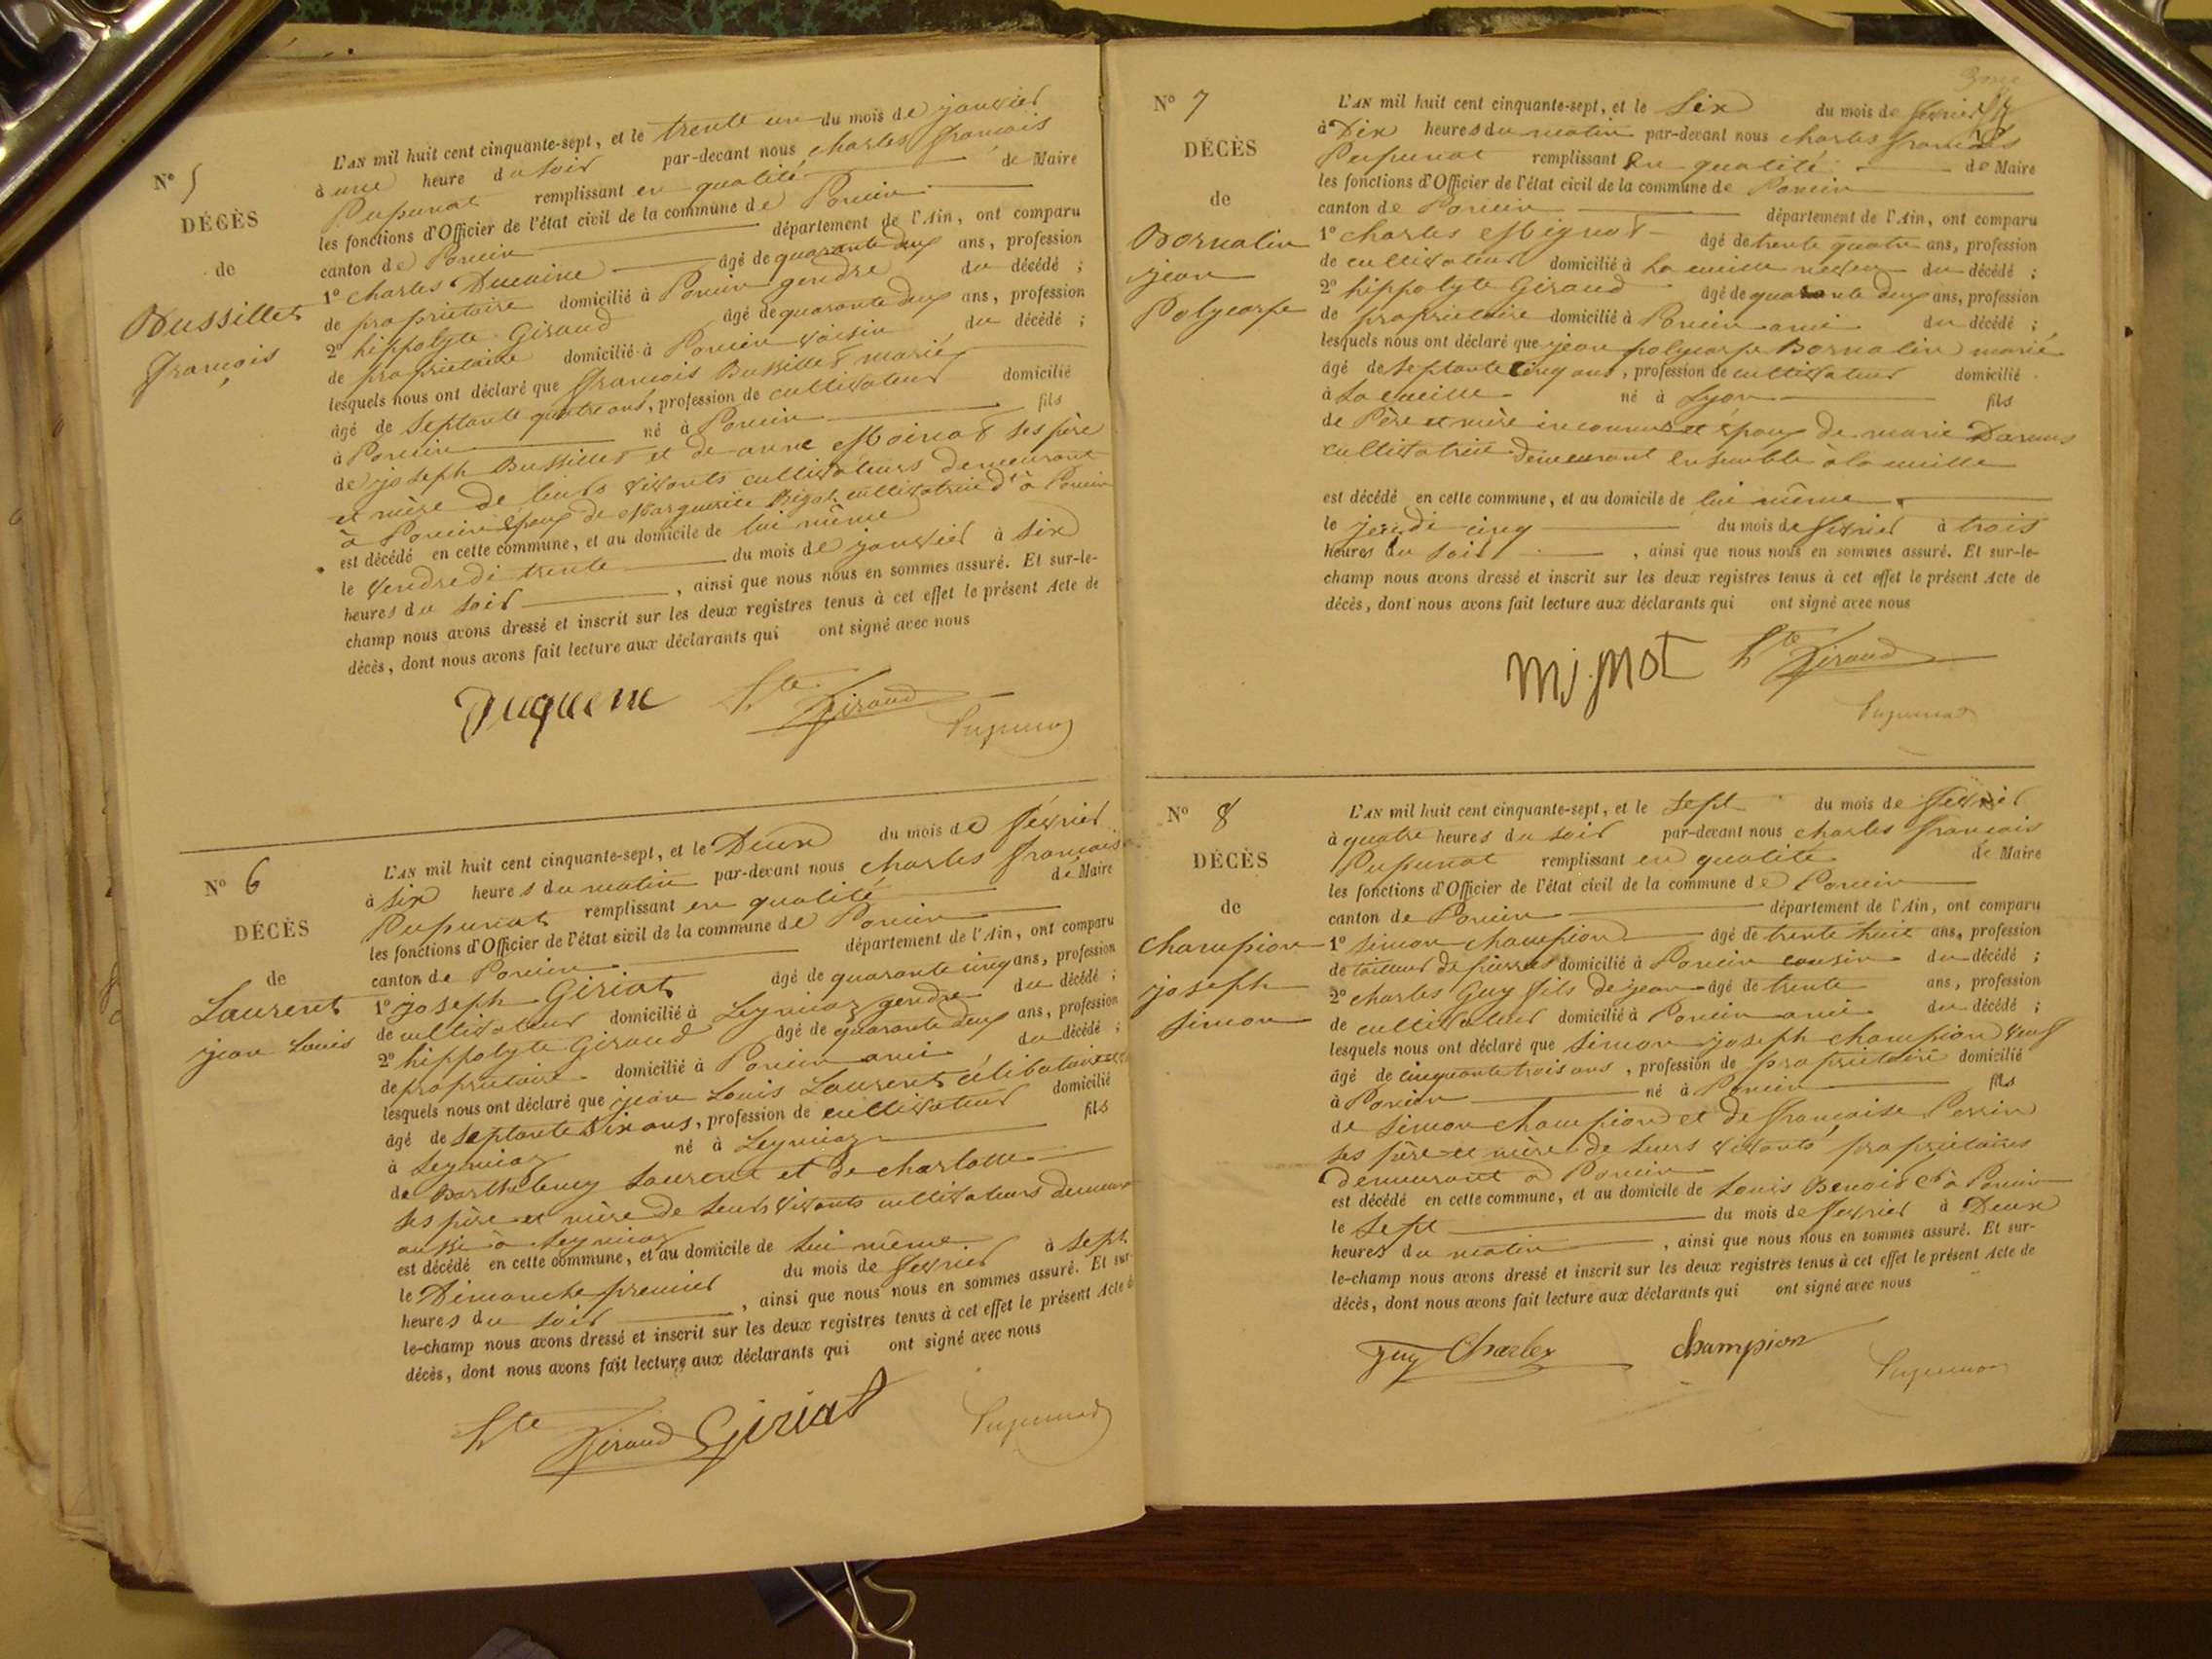 N° 5
DÉCÈS
de
Bussillet
françois
L'AN mil huit cent cinquante-sept, et le trente un du mois de janvier
à une heure du soir par-devant nous charles françois
Pupunat remplissant en qualité de Maire
les fonctions d'Officier de l'état civil de la commune de Poncin
canton de Poncin département de l'Ain, ont comparu
1° charles âgé de quarante deux ans, profession
de propriétaire domicilié à Poncin gendre du décédé ;
2° hippolyte Giraud âgé de quarante deux ans, profession
de propriétaire domicilié à Poncin voisin du décédé ;
lesquels nous ont déclaré que françois Bussillet marié
âgé de septante quatre ans, profession de cultivateur domicilié
à Poncin né à Poncin fils
de joseph Bussillet et de anne Moinat ses père
et mère de leurs vivants cultivateurs demeurant
à Poncin époux de Marguerite cultivatrice dt à Poncin
est décédé en cette commune, et au domicile de lui même
le vendredi trente du mois de janvier à six
heures du soir , ainsi que nous nous en sommes assuré. Et sur-le-
champ nous avons dressé et inscrit sur les deux registres tenus à cet effet le présent Acte de
décès, dont nous avons fait lecture aux déclarants qui ont signé avec nous
Duquene hte Giraud Pupunat
N° 6
DÉCÈS
de
Laurent
jean Louis
L'AN mil huit cent cinquante-sept, et le Deux du mois de février
à six heures du matin par-devant nous charles françois
Pupunat remplissant en qualité de Maire
les fonctions d'Officier de l'état civil de la commune de Poncin
canton de Poncin département de l'Ain, ont comparu
1° joseph Giriat âgé de quarante cinq ans, profession
de cultivateur domicilié à Leymiaz gendre du décédé ;
2° hippolyte Giraud âgé de quarante deux ans, profession
de propriétaire domicilié à Poncin ami du décédé ;
lesquels nous ont déclaré que jean Louis Laurent célibataire
âgé de septante six ans, profession de cultivateur domicilié
à Leymiaz né à Leymiaz fils
de Barthelemy Laurent et de charlotte
ses père et mère de leurs vivants cultivateurs demeurant
aussi à Leymiaz
est décédé en cette commune, et au domicile de lui même
le Dimanche premier du mois de février à sept
heures du soir , ainsi que nous nous en sommes assuré. Et sur-
le-champ nous avons dressé et inscrit sur les deux registres tenus à cet effet le présent Acte de
décès, dont nous avons fait lecture aux déclarants qui ont signé avec nous
hte Giraud Giriat Pupunat
N° 7
DÉCÈS
de
Bornalin
jean
Polycarpe
L'AN mil huit cent cinquante-sept, et le six du mois de février
à Dix heures du matin par-devant nous charles françois
Pupunat remplissant en qualité de Maire
les fonctions d'Officier de l'état civil de la commune de Poncin
canton de Poncin département de l'Ain, ont comparu
1° charles Mignot âgé de trente quatre ans, profession
de cultivateur domicilié à La cueille neveu du décédé ;
2° hippolyte Giraud âgé de quarante deux ans, profession
de propriétaire domicilié à Poncin ami du décédé ;
lesquels nous ont déclaré que jean polycarpe Bornalin marié
âgé de septante cinq ans, profession de cultivateur domicilié
à La cueille né à Lyon fils
de Père et mère inconnus et époux de marie
cultivatrice demeurant ensemble à la cueille
est décédé en cette commune, et au domicile de lui même
le jeudi cinq du mois de février à trois
heures du soir , ainsi que nous nous en sommes assuré. Et sur-le-
champ nous avons dressé et inscrit sur les deux registres tenus à cet effet le présent Acte de
décès, dont nous avons fait lecture aux déclarants qui ont signé avec nous
Mignot hte Giraud
Pupunat
N° 8
DÉCÈS
de
champion
joseph
simon
L'AN mil huit cent cinquante-sept, et le sept du mois de février
à quatre heures du soir par-devant nous charles françois
Pupunat remplissant en qualité de Maire
les fonctions d'Officier de l'état civil de la commune de Poncin
canton de Poncin département de l'Ain, ont comparu
1° simon champion âgé de trente huit ans, profession
de tailleur de pierres domicilié à Poncin cousin du décédé ;
2° charles Guy fils de jean âgé de trente ans, profession
de cultivateur domicilié à Poncin ami du décédé ;
lesquels nous ont déclaré que simon joseph champion veuf
âgé de cinquante trois ans, profession de propriétaire domicilié
à Poncin né à Poncin fils
de simon champion et de françoise Perrin
ses père et mère de leurs vivants propriétaires
demeurant à Poncin
est décédé en cette commune, et au domicile de Louis Benoid dt à Poncin
le sept du mois de février à Deux
heures du matin , ainsi que nous nous en sommes assuré. Et sur-
le-champ nous avons dressé et inscrit sur les deux registres tenus à cet effet le présent Acte de
décès, dont nous avons fait lecture aux déclarants qui ont signé avec nous
guy Charles champion Pupunat